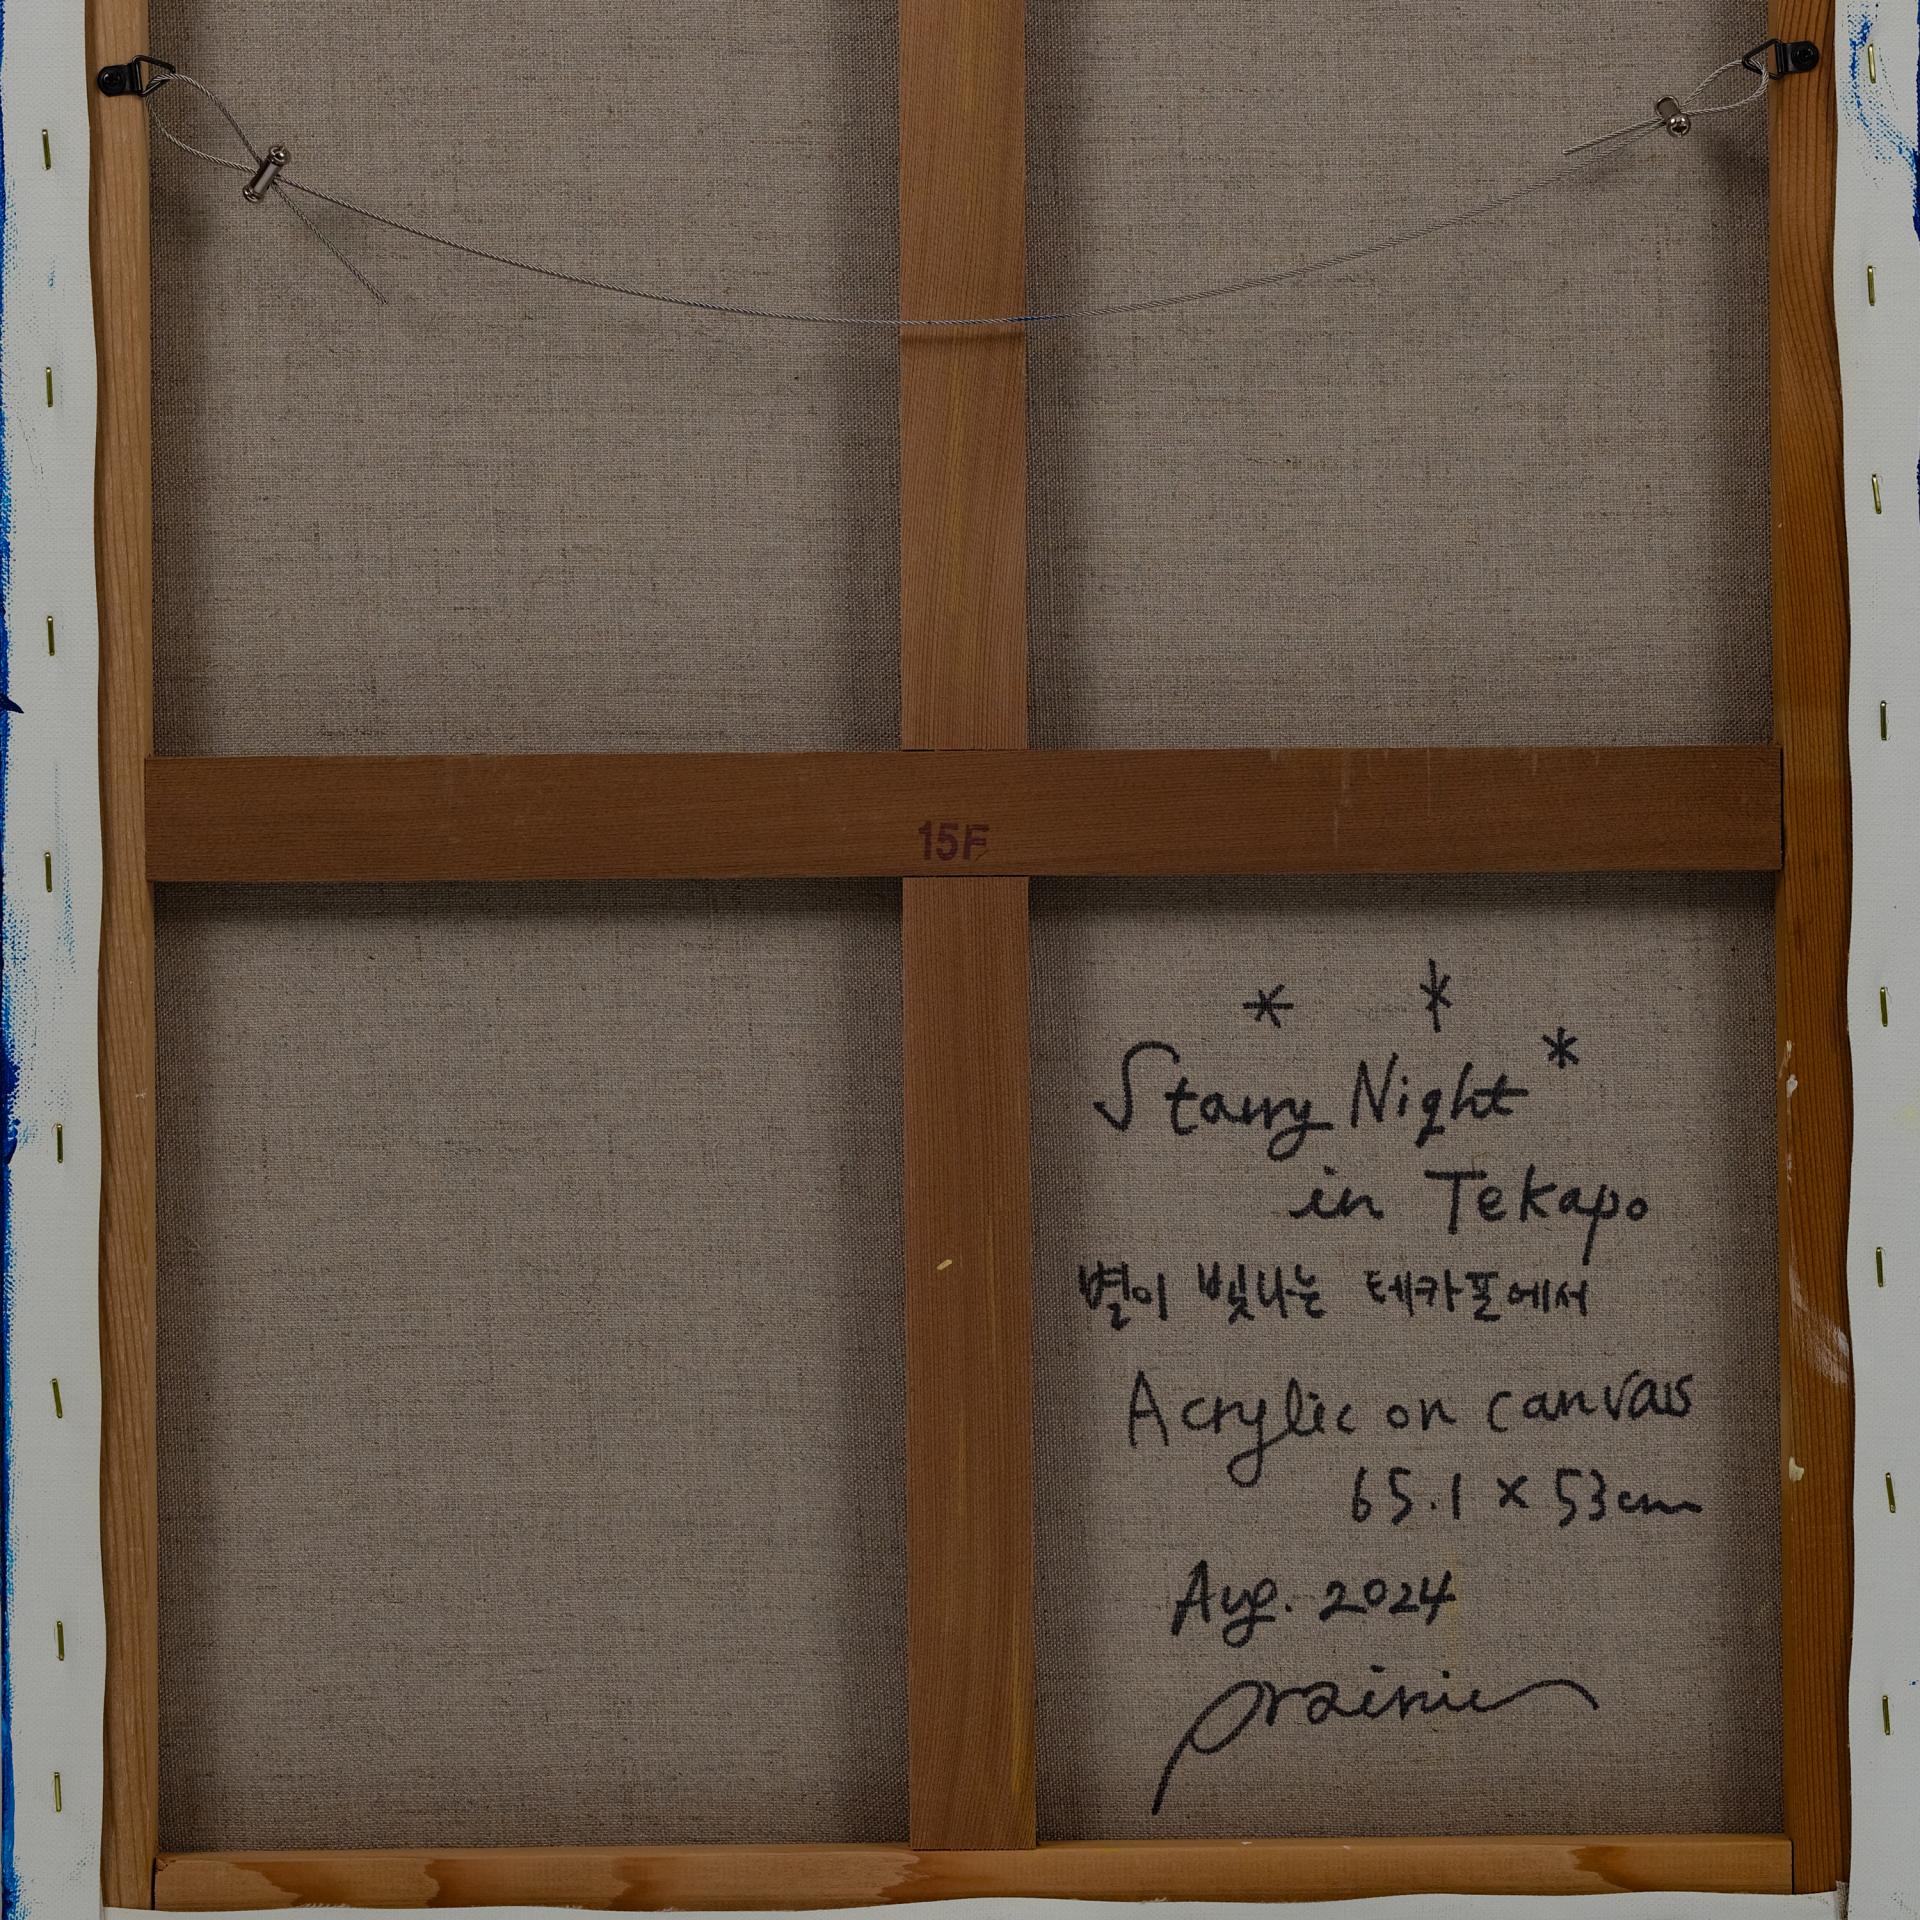 15F
Starry Night
in Tekapo
별이 빛나는 테카포에서
Acrylic on canvas
65.1 x 53cm
Aug. 2024
prainie